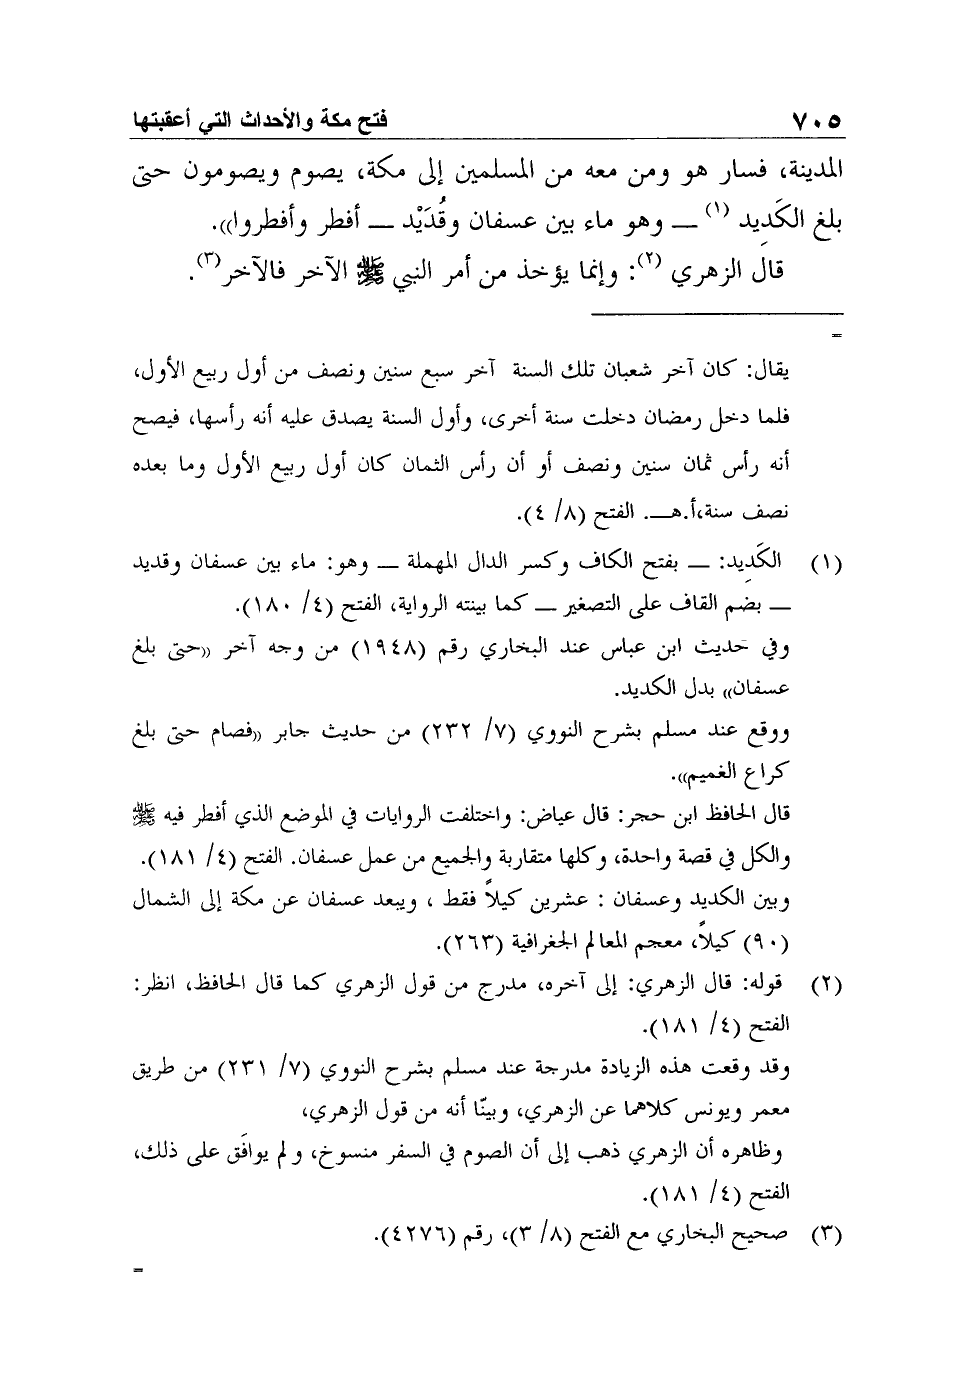 ٧٠٥ فتح مكة والأحداث التي أعقبتها
المدينة، فسار هو ومن معه من المسلمين إلى مكة، يصوم ويصومون حتى
بلغ الكَدِيد (١) ـــ وهو ماء بين عسفان وقُدَيْد ـــ أفطر وأفطروا)).
قال الزهري (٢): وإنما يؤخذ من أمر النبي ﷺ الآخر فالآخر(٣).
=
يقال: كان آخر شعبان تلك السنة آخر سبع سنين ونصف من أول ربيع الأول،
فلما دخل رمضان دخلت سنة أخرى، وأول السنة يصدق عليه أنه رأسها، فيصح
أنه رأس ثمان سنين ونصف أو أن رأس الثمان كان أول ربيع الأول وما بعده
نصف سنة،أ.هــ. الفتح (٨/ ٤).
(١) الكَدِيد: ـــ بفتح الكاف وكسر الدال المهملة ـــ وهو: ماء بين عسفان وقديد
ـــ بضم القاف على التصغير ـــ كما بينته الرواية، الفتح (٤/ ١٨٠).
وفي حديث ابن عباس عند البخاري رقم (١٩٤٨) من وجه آخر ((حتى بلغ
عسفان)) بدل الكديد.
ووقع عند مسلم بشرح النووي (٧/ ٢٣٢) من حديث جابر ((فصام حتى بلغ
كراع الغميم)).
قال الحافظ ابن حجر: قال عياض: واختلفت الروايات في الموضع الذي أفطر فيه ﷺ
والكل في قصة واحدة، وكلها متقاربة والجميع من عمل عسفان. الفتح (٤/ ١٨١).
وبين الكديد وعسفان : عشرين كيلاً فقط ، ويبعد عسفان عن مكة إلى الشمال
(٩٠) كيلاً، معجم المعالم الجغرافية (٢٦٣).
(٢) قوله: قال الزهري: إلى آخره، مدرج من قول الزهري كما قال الحافظ، انظر:
الفتح (٤/ ١٨١).
وقد وقعت هذه الزيادة مدرجة عند مسلم بشرح النووي (٧/ ٢٣١) من طريق
معمر ويونس كلاهما عن الزهري، وبينّا أنه من قول الزهري،
وظاهره أن الزهري ذهب إلى أن الصوم في السفر منسوخ، ولم يوافَق على ذلك،
الفتح (٤/ ١٨١).
(٣) صحيح البخاري مع الفتح (٨/ ٣)، رقم (٤٢٧٦).
=